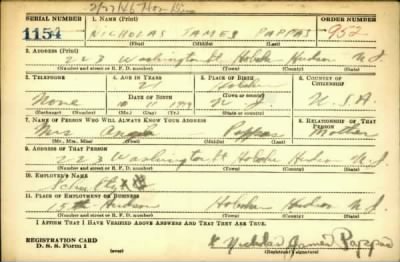 SERIAL NUMBER 1. NAME (Print) ORDER NUMBER
1154 NICHOLAS JAMES PAPPAS 952
(First) (Middle) (Last)
2. ADDRESS (Print)
223 Washington St Hoboken Hudson N.J.
(Number and street or R. F. D. number) (Town) (County) (State)
3. TELEPHONE 4. AGE IN YEARS 5. PLACE OF BIRTH 6. COUNTRY OF CITIZENSHIP
21 Hoboken
None DATE OF BIRTH (Town or county) U.S.A.
N.J.
(Exchange) (Number) (Mo.) (Day) (Yr.) (State or country)
7. NAME OF PERSON WHO WILL ALWAYS KNOW YOUR ADDRESS 8. RELATIONSHIP OF THAT PERSON
Mrs Pappas Mother
(Mr., Mrs., Miss) (First) (Middle) (Last)
9. ADDRESS OF THAT PERSON
223 Washington St Hoboken Hudson N.J.
(Number and street or R. F. D. number) (Town) (County) (State)
10. EMPLOYER'S NAME
11. PLACE OF EMPLOYMENT OR BUSINESS
Hudson Hoboken Hudson N.J.
(Number and street or R. F. D. number) (Town) (County) (State)
I AFFIRM THAT I HAVE VERIFIED ABOVE ANSWERS AND THAT THEY ARE TRUE.
REGISTRATION CARD
D. S. S. Form 1
Nicholas James Pappas
(Registrant's signature)